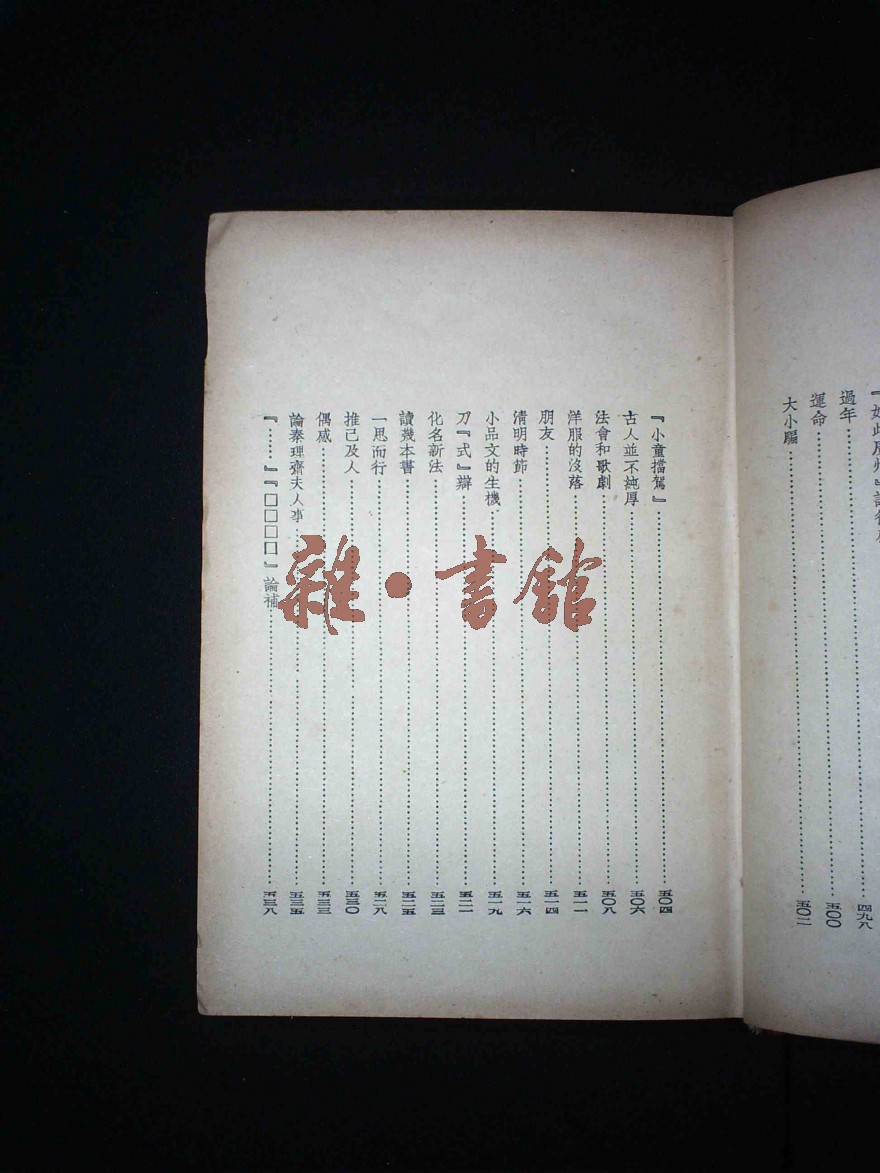 過年 四九八
運命 五〇〇
大小騙 五〇二
『小童擋駕』 五〇四
古人並不純厚 五〇六
法會和歌劇 五〇八
洋服的沒落 五一一
朋友 五一四
清明時節 五一六
小品文的生機 五一九
刀『式』辯 五二一
化名新法 五二三
讀幾本書 五二五
一思而行 五二八
推己及人 五三〇
偶感 五三三
論秦理齋夫人事 五三五
『……』『□□□□』論補 五三八
雜·書館